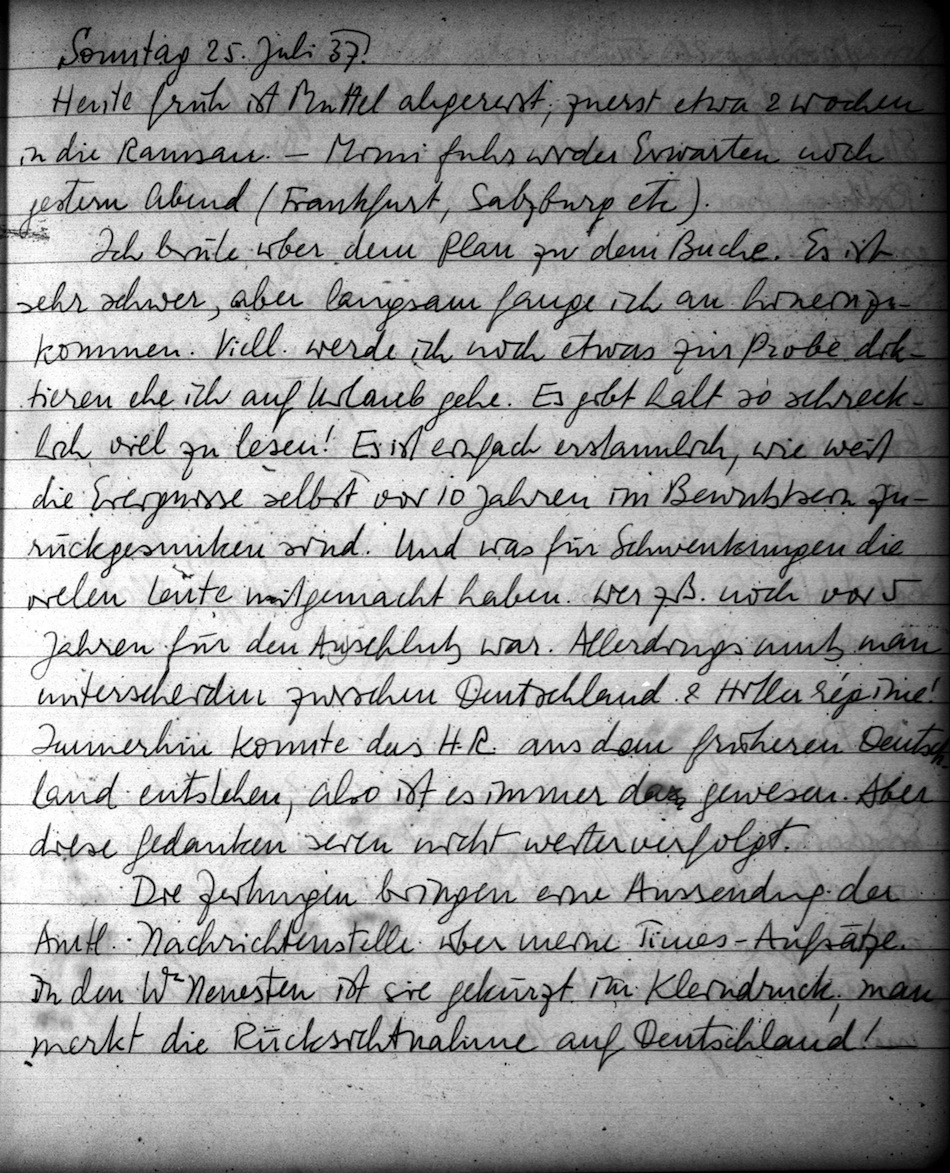 Sonntag 25. Juli 37!
Heute früh ist Muttel abgereist, zuerst etwa 2 Wochen
in die Ramsau. – Momi fuhr wider Erwarten noch
gestern Abend (Frankfurt, Salzburg etc).
Ich brüte über dem Plan zu dem Buche. Es ist
sehr schwer, aber langsam fange ich an hineinzu-
kommen. Viell. werde ich noch etwas zur Probe dik-
tieren ehe ich auf Urlaub gehe. Es gibt halt so schreck-
lich viel zu lesen! Es ist einfach erstaunlich, wie weit
die Ereignisse selbst vor 10 Jahren im Bewußtsein zu-
rückgesunken sind. Und was für Schwenkungen die
vielen Leute mitgemacht haben. Wer zB. noch vor 5
Jahren für den Anschluß war. Allerdings muß man
unterscheiden zwischen Deutschland & Hitler régime!
Immerhin konnte das H.R. aus dem früheren Deutsch
land entstehen, also ist es immer da gewesen. Aber
diese Gedanken seien nicht weiterverfolgt.
Die Zeitungen bringen eine Aussendung der
Amtl. Nachrichtenstelle über meine Times-Aufsätze.
In den Wr Neuesten ist sie gekürzt im Kleindruck, man
merkt die Rücksichtnahme auf Deutschland! —